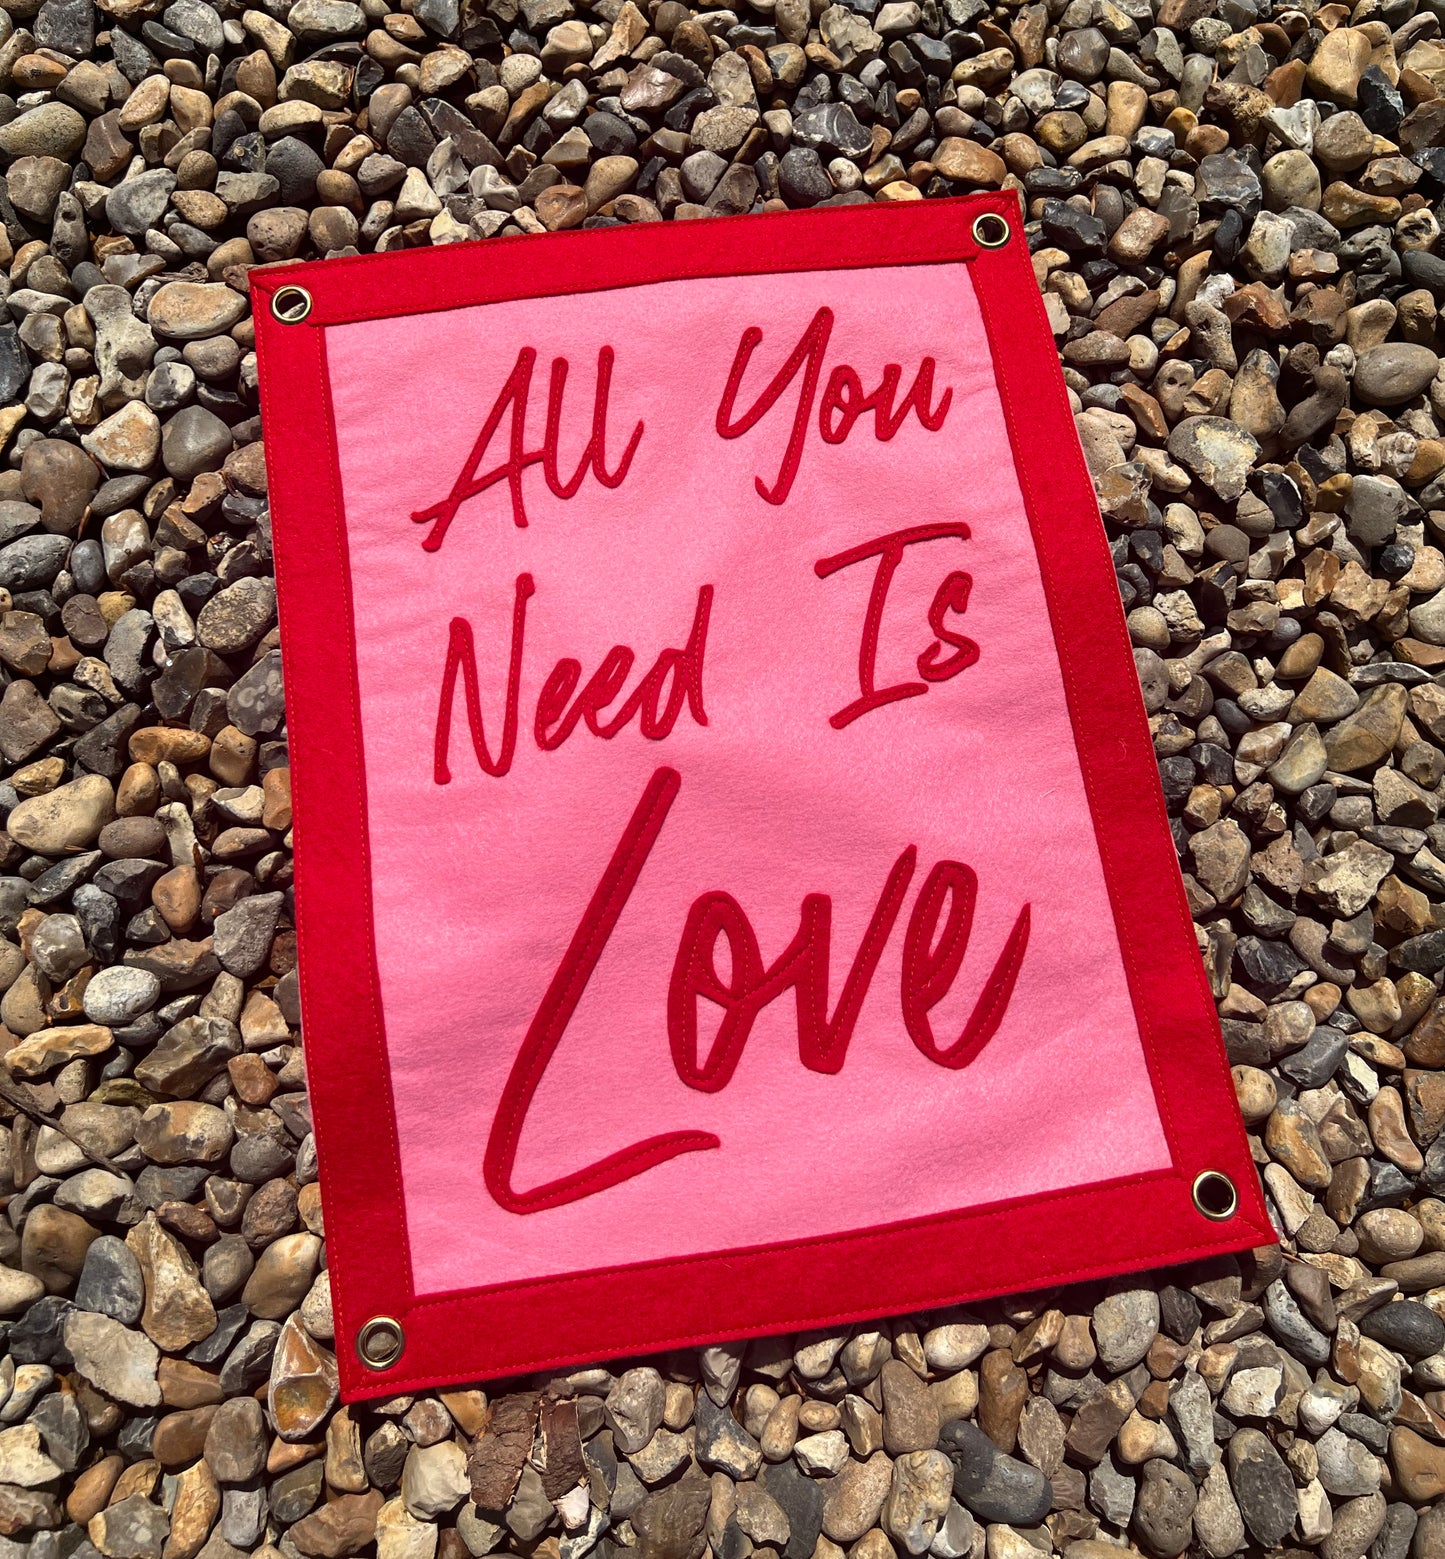 All You
Need Is
Love